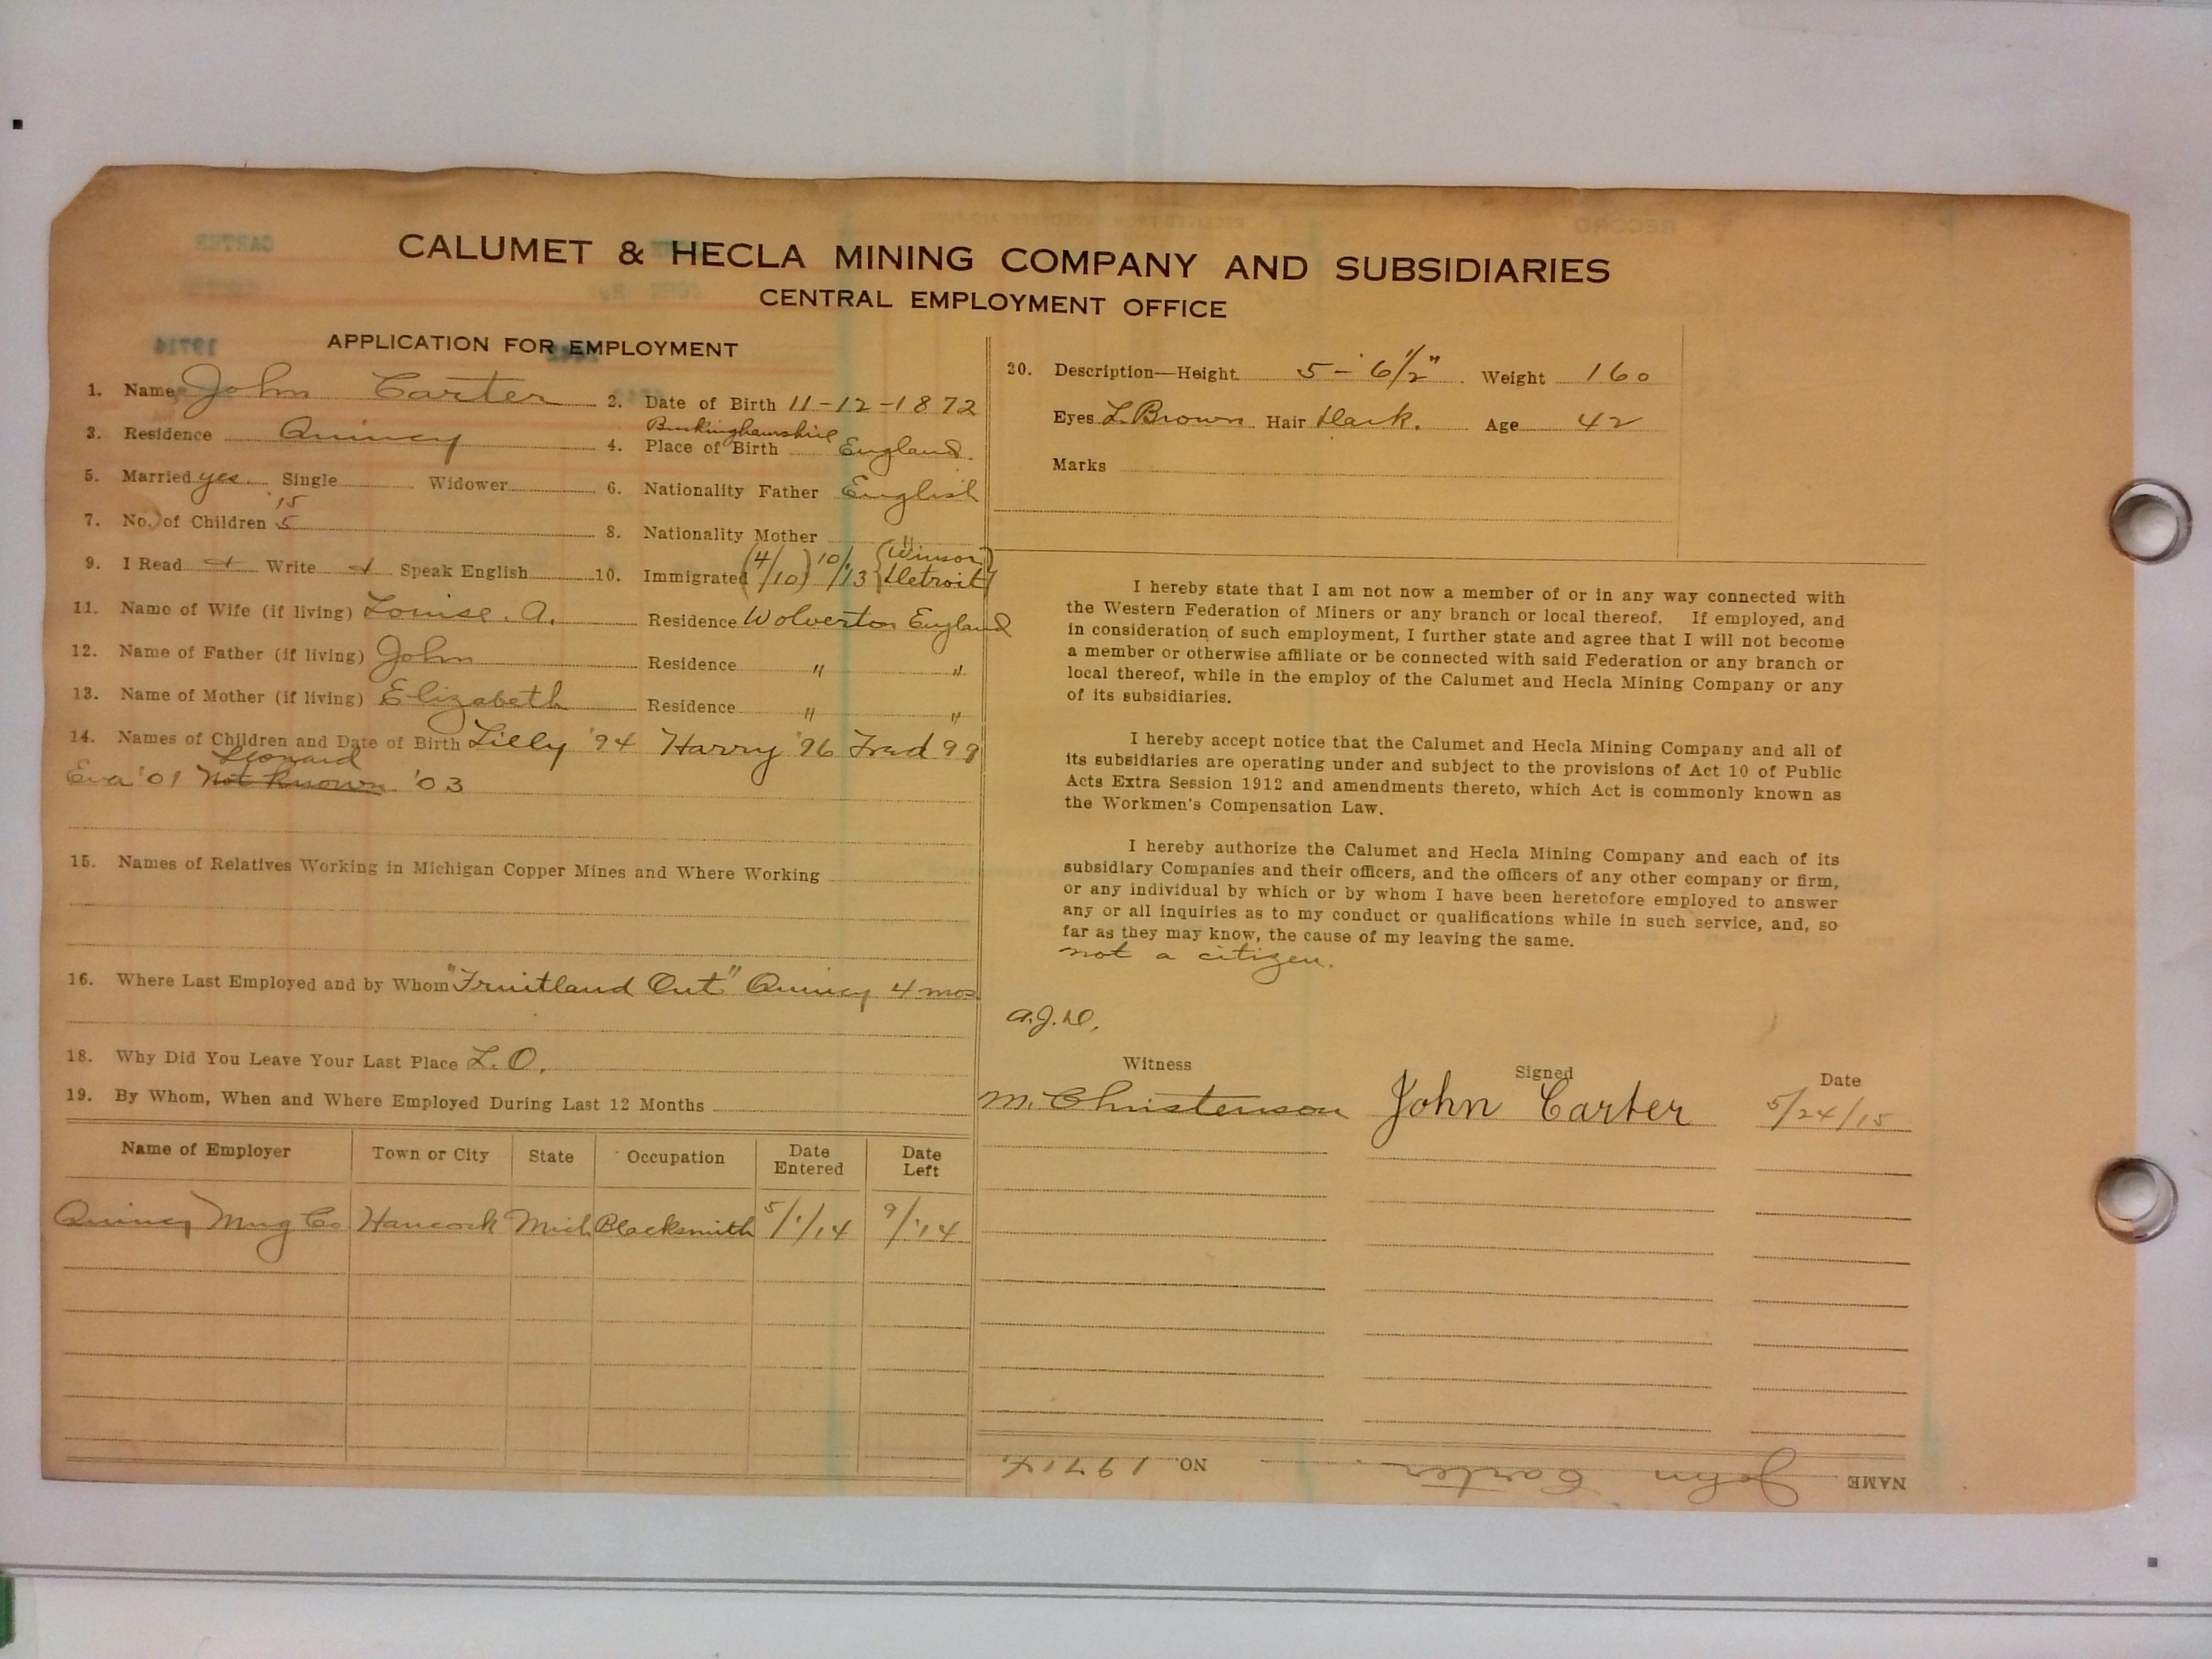 CALUMET & HECLA MINING COMPANY AND SUBSIDIARIES
CENTRAL EMPLOYMENT OFFICE
APPLICATION FOR EMPLOYMENT
1. Name John Carter 2. Date of Birth 11-12-1872
3. Residence Quincy 4. Place of Birth Buckinghamshire England.
5. Married yes. Single Widower 6. Nationality Father English
7. No. of Children 5 15 8. Nationality Mother "
9. I Read + Write + Speak English 10. Immigrated (4/10) 10/1/13 (Winsor) Detroit
11. Name of Wife (if living) Louise. A. Residence Wolverton England
12. Name of Father (if living) John Residence " "
13. Name of Mother (if living) Elizabeth Residence " "
14. Names of Children and Date of Birth Lilly '94 Harry '96 Fred 99
Leonard
Eva '01 Not Known '03
15. Names of Relatives Working in Michigan Copper Mines and Where Working
16. Where Last Employed and by Whom "Fruitland Ont" Quincy 4 mos
18. Why Did You Leave Your Last Place L.O.
19. By Whom, When and Where Employed During Last 12 Months
Name of Employer Town or City State Occupation Date Entered Date Left
Quincy Mng Co Hancock Mich Blacksmith 5/1/14 9/'14
20. Description—Height 5-6 1/2" Weight 160
Eyes L. Brown Hair Dark. Age 42
Marks
I hereby state that I am not now a member of or in any way connected with
the Western Federation of Miners or any branch or local thereof. If employed, and
in consideration of such employment, I further state and agree that I will not become
a member or otherwise affiliate or be connected with said Federation or any branch or
local thereof, while in the employ of the Calumet and Hecla Mining Company or any
of its subsidiaries.
I hereby accept notice that the Calumet and Hecla Mining Company and all of
its subsidiaries are operating under and subject to the provisions of Act 10 of Public
Acts Extra Session 1912 and amendments thereto, which Act is commonly known as
the Workmen's Compensation Law.
I hereby authorize the Calumet and Hecla Mining Company and each of its
subsidiary Companies and their officers, and the officers of any other company or firm,
or any individual by which or by whom I have been heretofore employed to answer
any or all inquiries as to my conduct or qualifications while in such service, and, so
far as they may know, the cause of my leaving the same.
not a citizen.
A.J.D.
Witness Signed Date
M. Christenson John Carter 5/24/15
NAME John Carter. NO. 19714